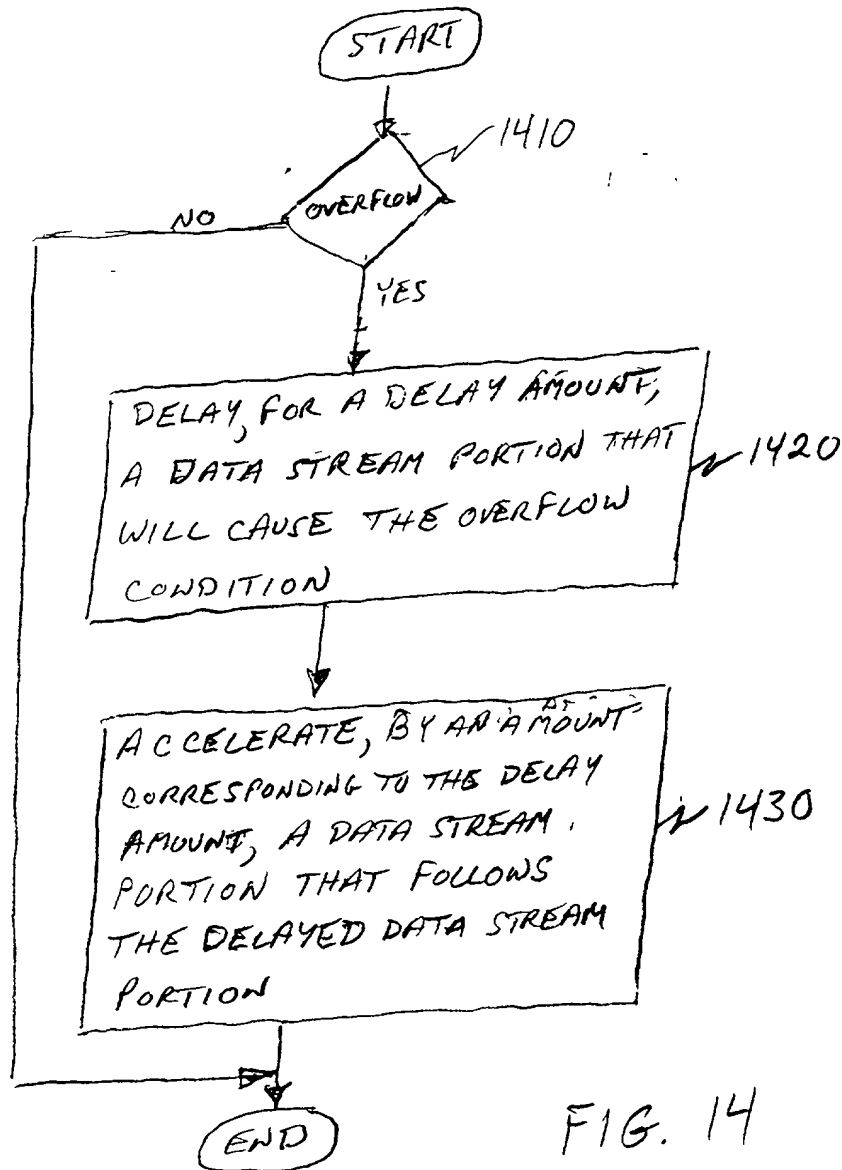 START
1410
OVERFLOW
NO
YES
DELAY, FOR A DELAY AMOUNT,
A DATA STREAM PORTION THAT
WILL CAUSE THE OVERFLOW
CONDITION
1420
ACCELERATE, BY AN AMOUNT
CORRESPONDING TO THE DELAY
AMOUNT, A DATA STREAM
PORTION THAT FOLLOWS
THE DELAYED DATA STREAM
PORTION
1430
END
FIG. 14